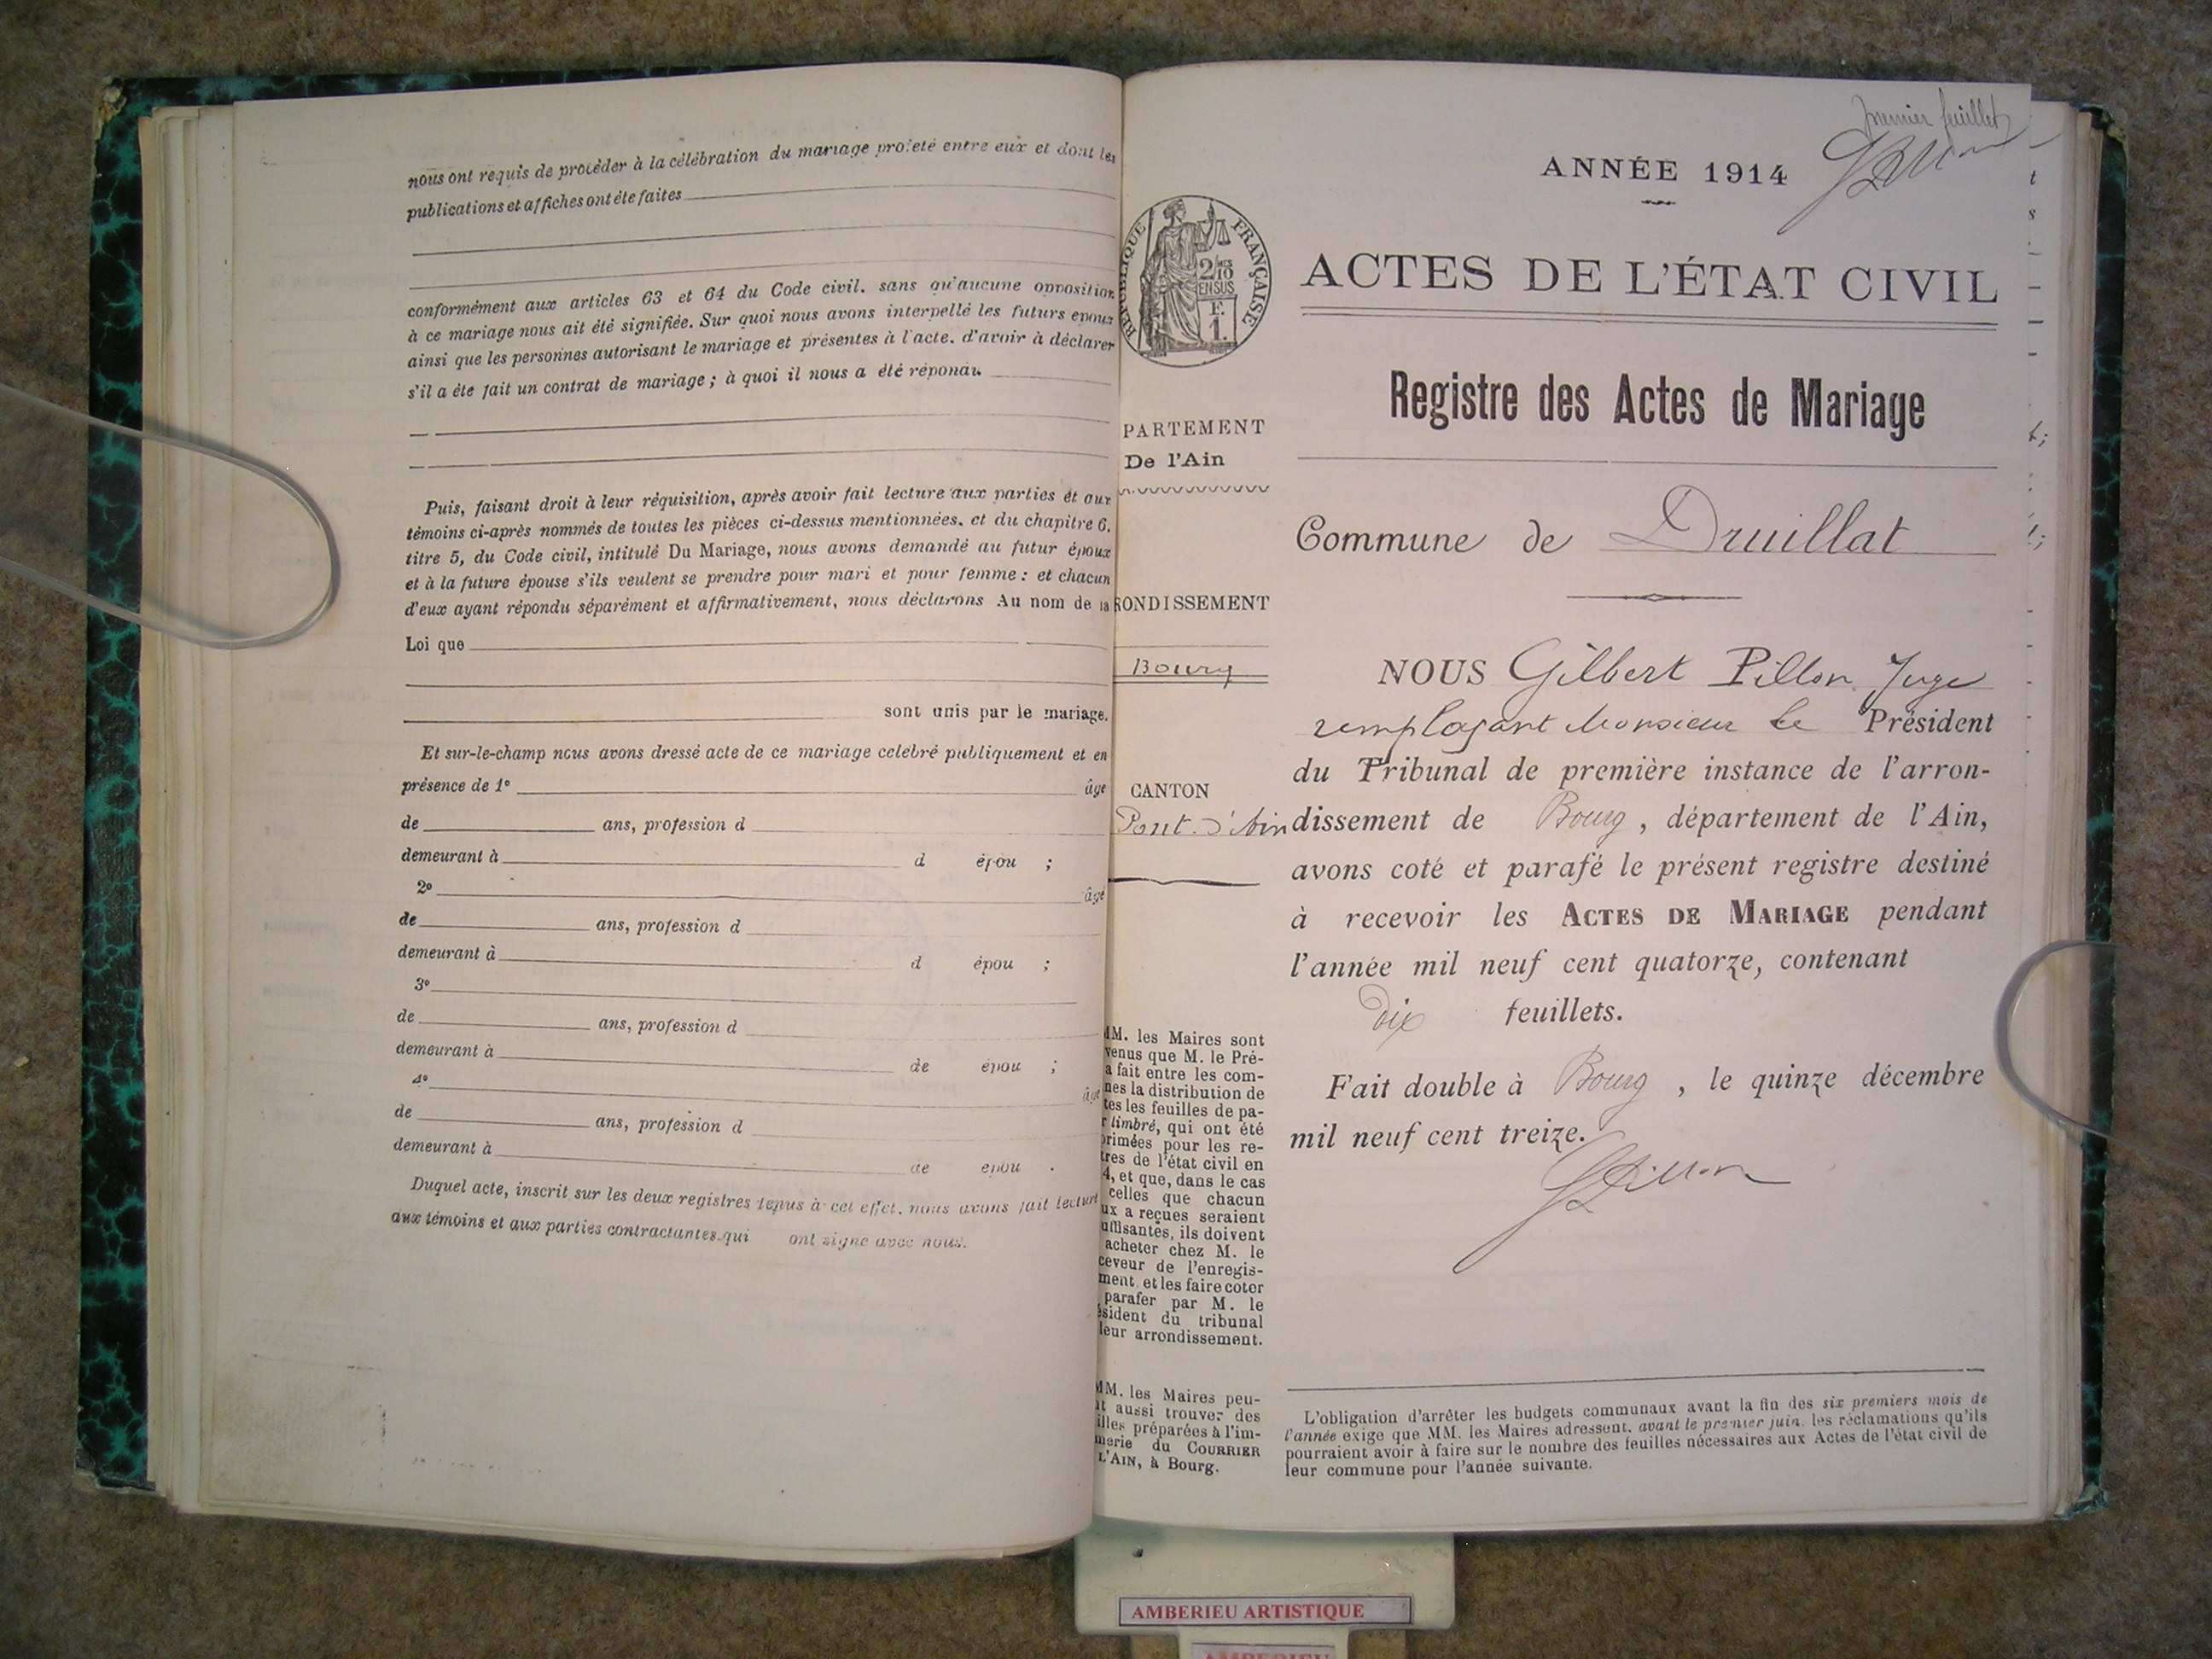 nous ont requis de procéder à la célébration du mariage projeté entre eux et dont les
publications et affiches ont été faites
conformément aux articles 63 et 64 du Code civil, sans qu'aucune opposition
à ce mariage nous ait été signifiée. Sur quoi nous avons interpellé les futurs epoux
ainsi que les personnes autorisant le mariage et présentes à l'acte, d'avoir à déclarer
s'il a été fait un contrat de mariage ; à quoi il nous a été répondu
Puis, faisant droit à leur réquisition, après avoir fait lecture aux parties et aux
témoins ci-après nommés de toutes les pièces ci-dessus mentionnées, et du chapitre 6,
titre 5, du Code civil, intitulé Du Mariage, nous avons demandé au futur époux
et à la future épouse s'ils veulent se prendre pour mari et pour femme : et chacun
d'eux ayant répondu séparément et affirmativement, nous déclarons Au nom de la
Loi que
sont unis par le mariage.
Et sur-le-champ nous avons dressé acte de ce mariage celebré publiquement et en
présence de 1º âgé
de ans, profession d
demeurant à d épou ;
2º âgé
de ans, profession d
demeurant à d épou ;
3º
de ans, profession d
demeurant à de epou ;
4º âgé
de ans, profession d
demeurant à de epou .
Duquel acte, inscrit sur les deux registres tenus à cet effet, nous avons fait lecture
aux témoins et aux parties contractantes qui ont signé avec nous.
premier feuillet
ANNÉE 1914
RÉPUBLIQUE FRANÇAISE
2/10
EN SUS
F.
1.
ACTES DE L'ÉTAT CIVIL
Registre des Actes de Mariage
PARTEMENT
De l'Ain
Commune de Druillat
RONDISSEMENT
Bourg
CANTON
Pont-d'Ain
NOUS Gilbert Pillon Juge
remplaçant Monsieur le Président
du Tribunal de première instance de l'arron-
dissement de Bourg, département de l'Ain,
avons coté et parafé le présent registre destiné
à recevoir les ACTES DE MARIAGE pendant
l'année mil neuf cent quatorze, contenant
Dix feuillets.
Fait double à Bourg, le quinze décembre
mil neuf cent treize.
GPillon
MM. les Maires sont
venus que M. le Pré-
a fait entre les com-
nes la distribution de
tes les feuilles de pa-
r timbré, qui ont été
primées pour les re-
tres de l'état civil en
4, et que, dans le cas
celles que chacun
ux a reçues seraient
uffisantes, ils doivent
acheter chez M. le
ceveur de l'enregis-
ment, et les faire coter
parafer par M. le
ésident du tribunal
leur arrondissement.
MM. les Maires peu-
nt aussi trouver des
illes préparées à l'im-
merie du COURRIER
L'AIN, à Bourg.
L'obligation d'arrêter les budgets communaux avant la fin des six premiers mois de
l'année exige que MM. les Maires adressent, avant le premier juin, les réclamations qu'ils
pourraient avoir à faire sur le nombre des feuilles nécessaires aux Actes de l'état civil de
leur commune pour l'année suivante.
AMBERIEU ARTISTIQUE
AMBERIEU